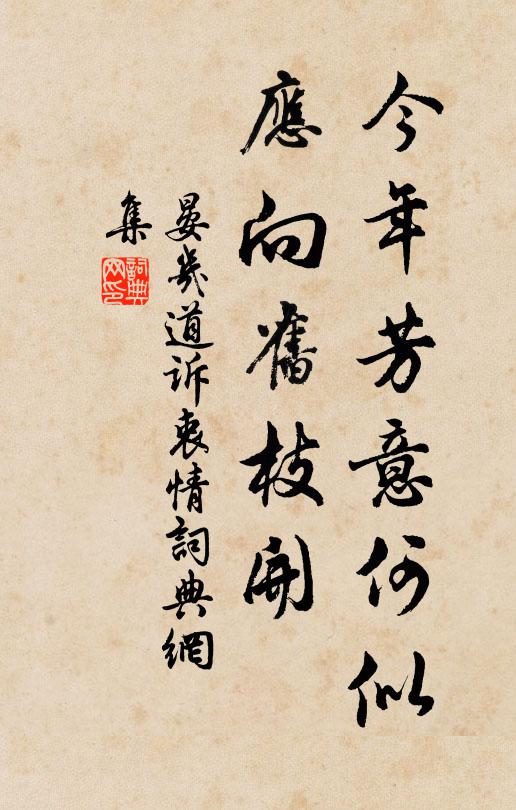 今年芳意何似
應向舊枝開
晏幾道訴衷情詞典網
集
詞典
网印